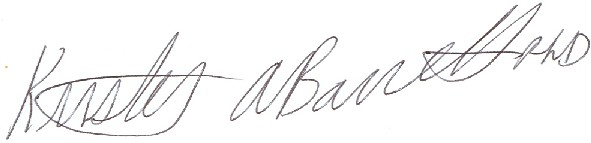 Kristy A Barrett PhD